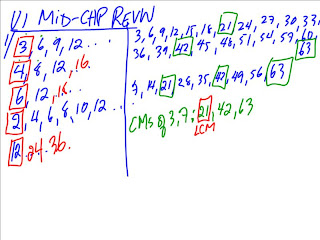 V1 MID-CHP REVW
1/ 3, 6, 9, 12 . . .
4, 8, 12, 16.
6, 12, 18.
2, 4, 6, 8, 10, 12 . . .
12. 24. 36.
3, 6, 9, 12, 15, 18, 21, 24, 27, 30, 33,
36, 39, 42, 45, 48, 51, 54, 57, 60,
63
7, 14, 21, 28, 35, 42, 49, 56, 63
CMs of 3, 7: 21, 42, 63
LCM